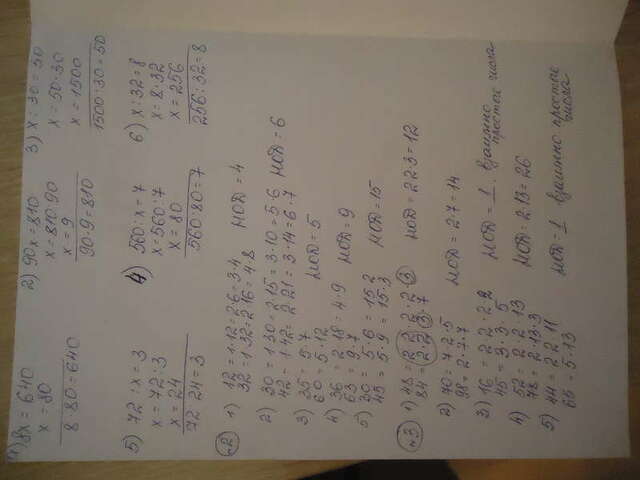 1) 8x = 640
x = 80
8·80 = 640
2) 90x = 810
x = 810:90
x = 9
90·9 = 810
3) x : 30 = 50
x = 50·30
x = 1500
1500:30 = 50
5) 72 : x = 3
x = 72:3
x = 24
72:24 = 3
4) 560:x = 7
x = 560:7
x = 80
560:80 = 7
6) x : 32 = 8
x = 8·32
x = 256
256:32 = 8
№2
1) 12 = 1·12 = 2·6 = 3·4
32 = 1·32 = 2·16 = 4·8 НОД = 4
2) 30 = 1·30 = 2·15 = 3·10 = 5·6
42 = 1·42 = 2·21 = 3·14 = 6·7 НОД = 6
3) 35 = 5·7
60 = 5·12 НОД = 5
4) 36 = 2·18 = 4·9
63 = 9·7 НОД = 9
5) 30 = 5·6 = 15·2
45 = 5·9 = 15·3 НОД = 15
№3
1) 48 = 2·2·2·2·3
84 = 2·2·3·7 НОД = 2·2·3 = 12
2) 70 = 7·2·5
98 = 2·7·7 НОД = 2·7 = 14
3) 16 = 2·2·2·2
45 = 3·3·5 НОД = 1 взаимно простые числа
4) 52 = 2·2·13
78 = 2·13·3 НОД = 2·13 = 26
5) 44 = 2·2·11
65 = 5·13 НОД = 1 взаимно простые числа